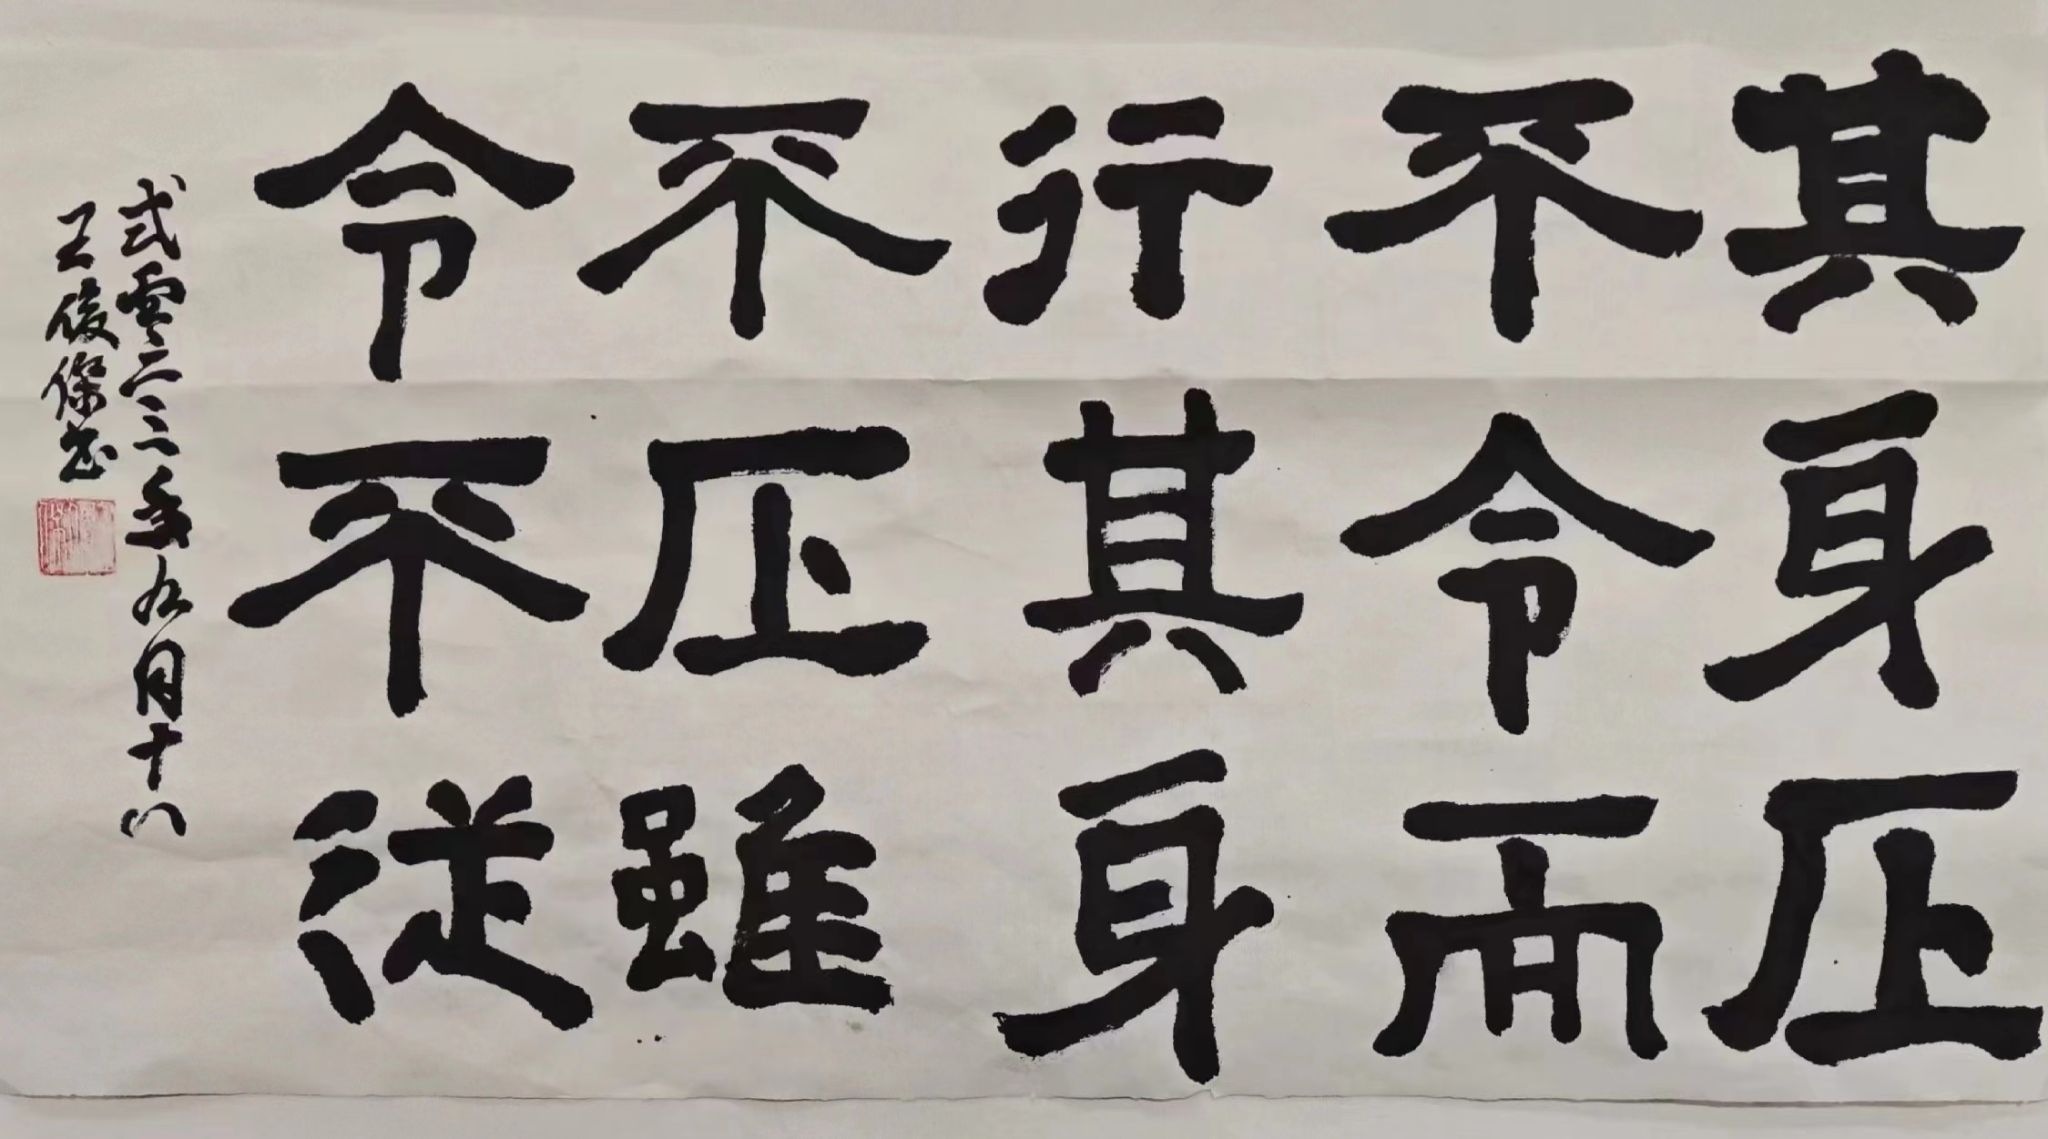 其身正
不令而
行其身
不正雖
令不従
弍零二三年九月十八
王俊傑书